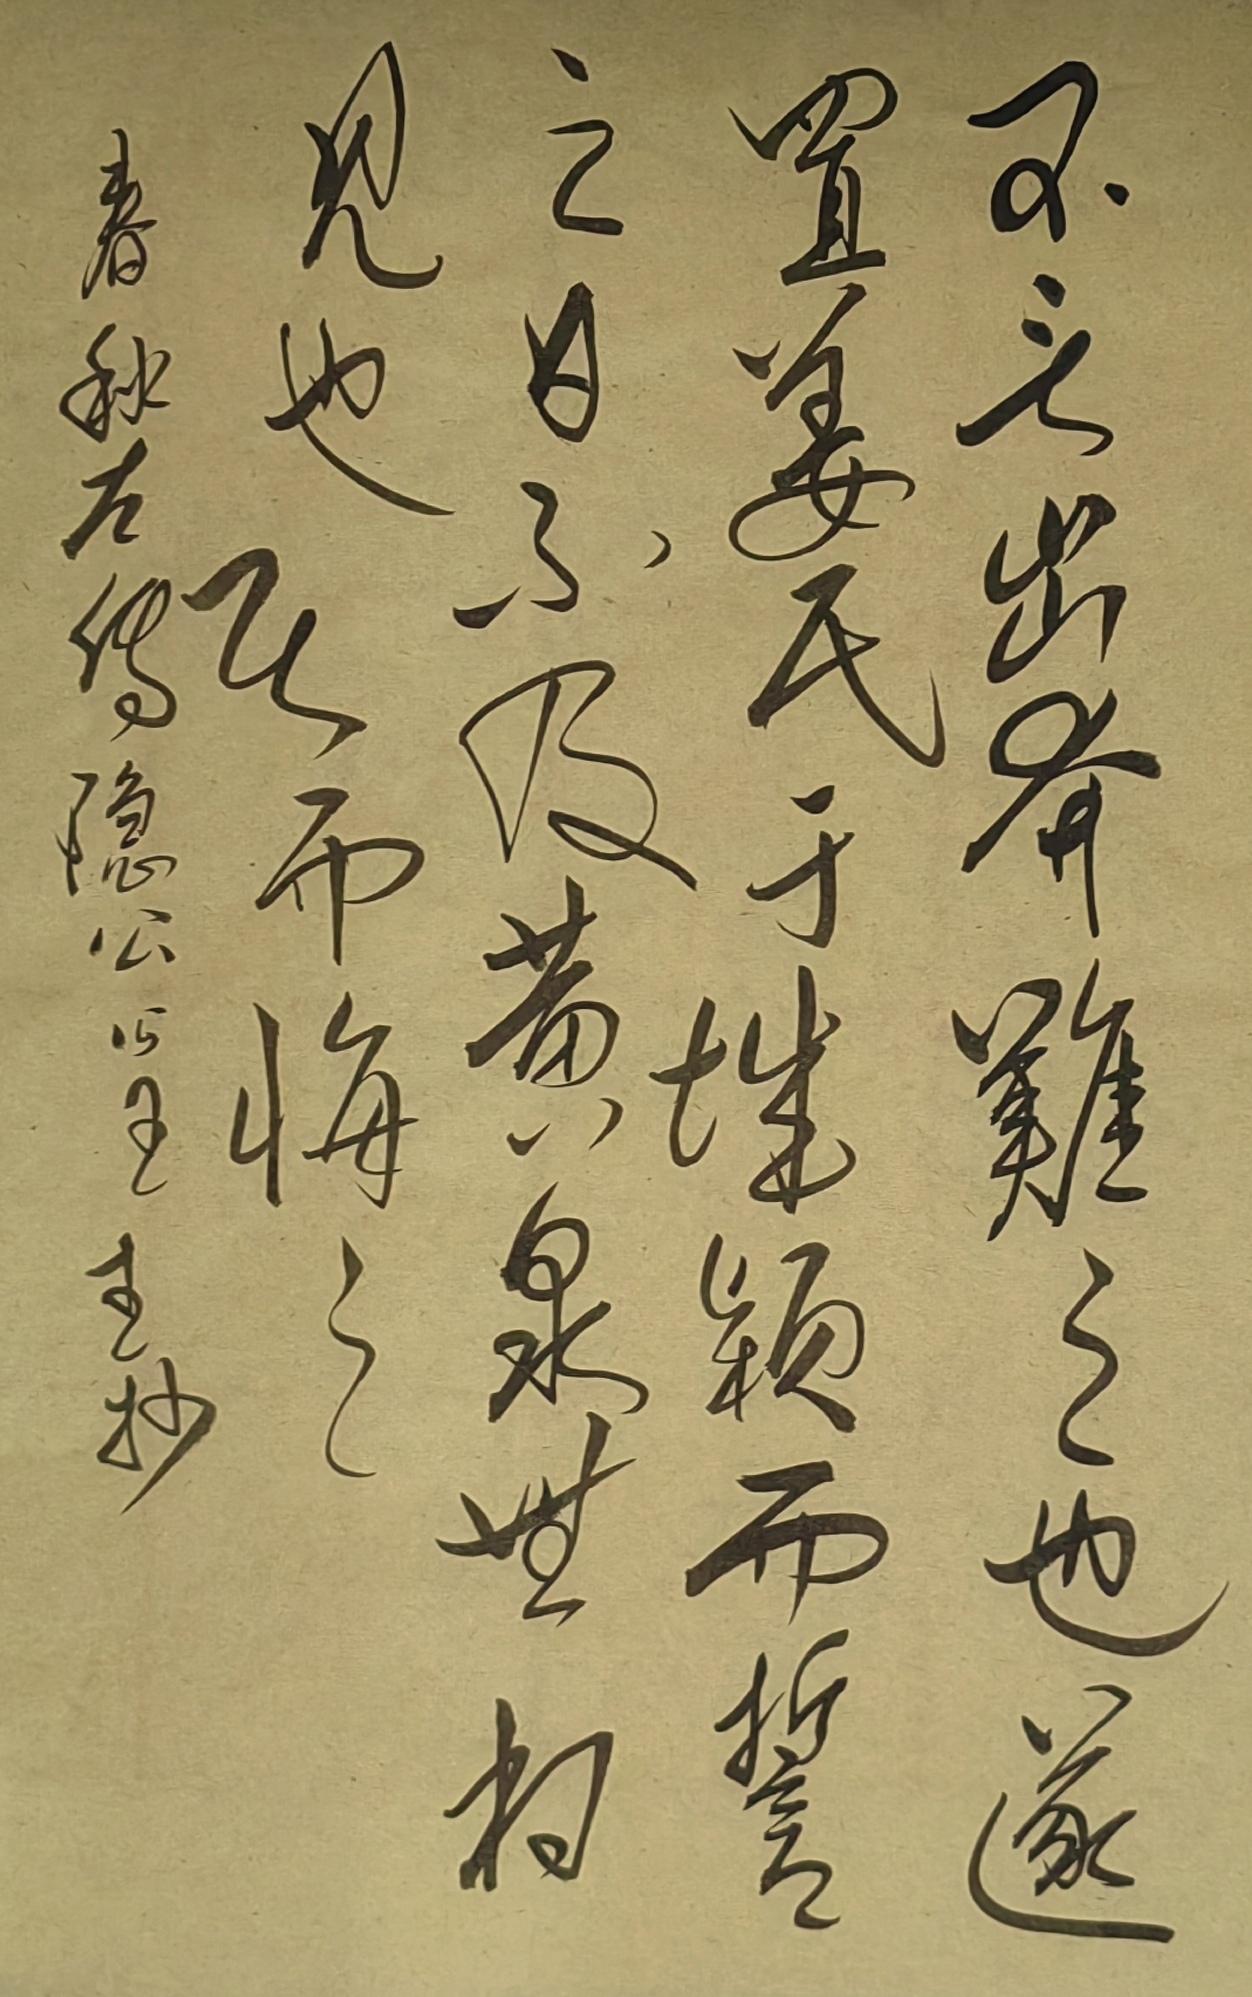 不言出奔難之也遂
置姜氏于城穎而誓
之曰不及黄泉無相
見也既而悔之
春秋左傳隐公抄